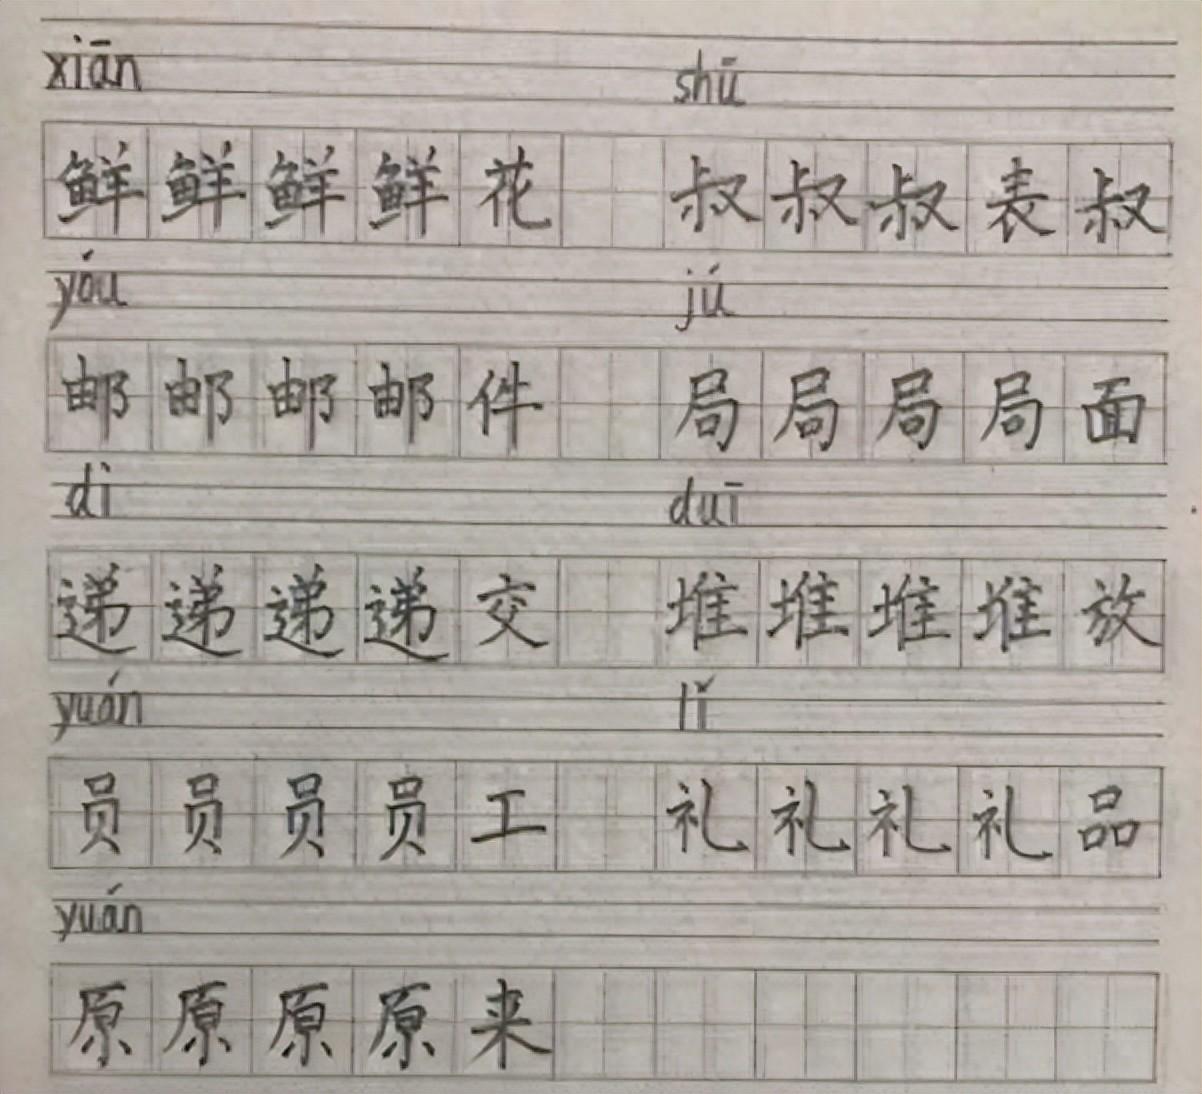 xiān shū
鲜鲜鲜鲜花 叔叔叔表叔
yóu jú
邮邮邮邮件 局局局局面
dì duī
递递递递交 堆堆堆堆放
yuán lǐ
员员员员工 礼礼礼礼品
yuán
原原原原来